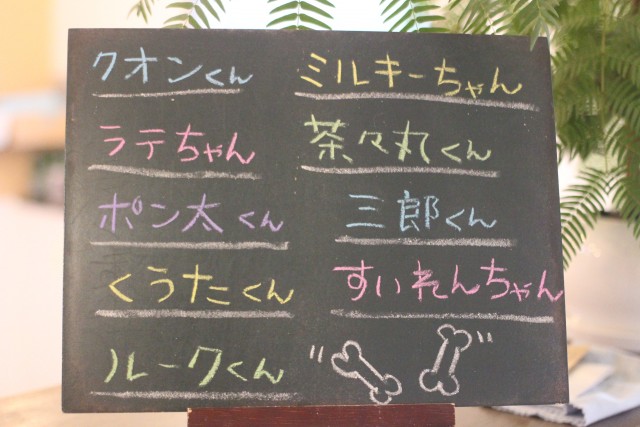 クオンくん
ミルキーちゃん
ラテちゃん
茶々丸くん
ポン太くん
三郎くん
くうたくん
すいれんちゃん
ルークくん